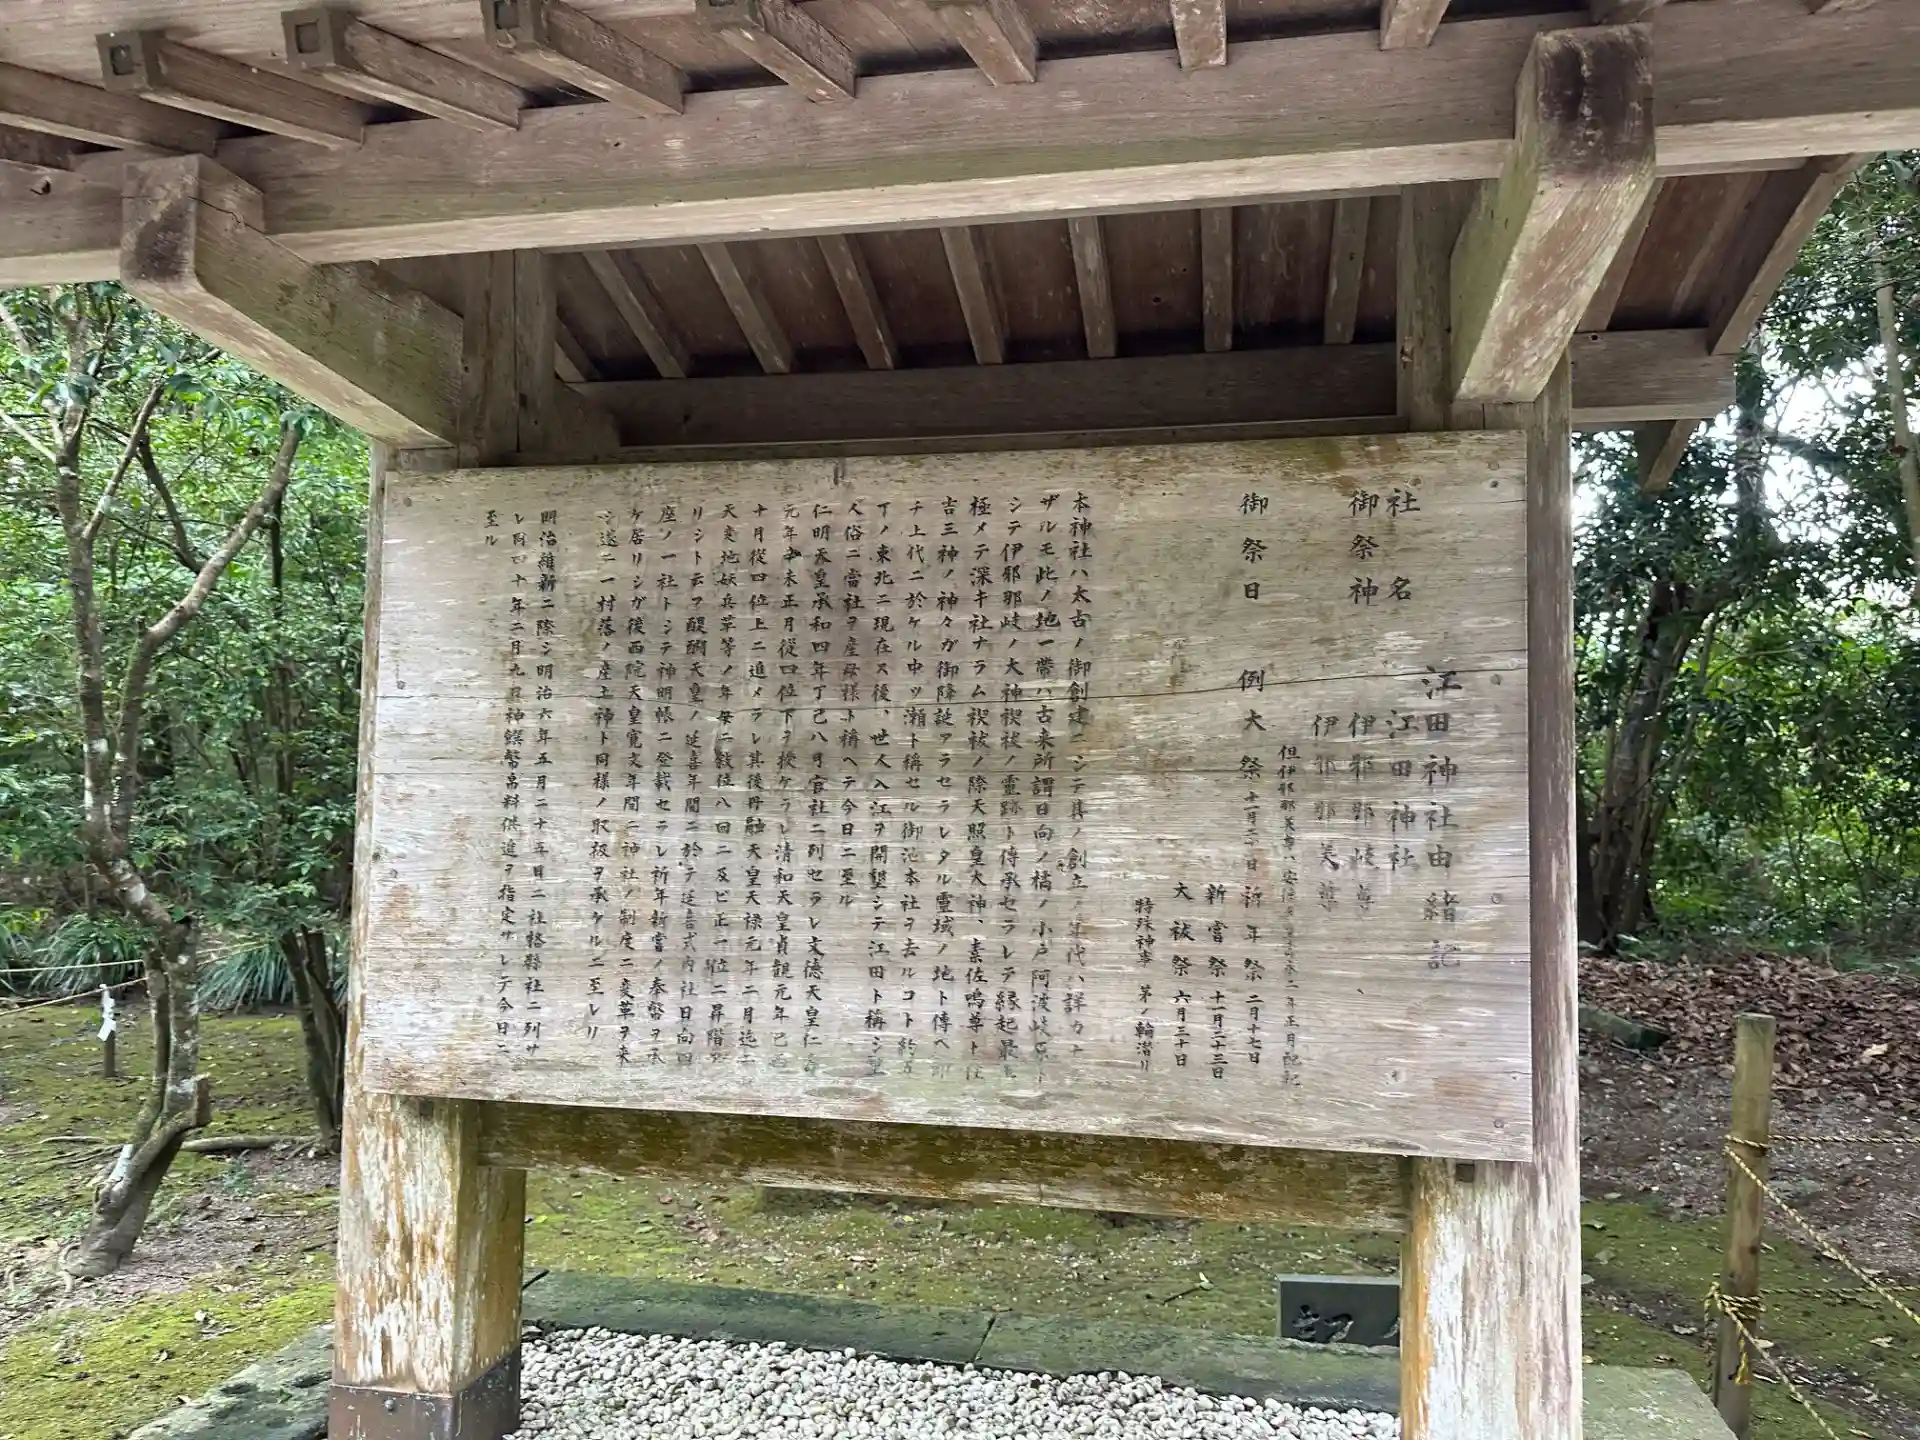 江田神社由緒記
社名 江田神社
御祭神 伊邪那岐尊
伊邪那美尊
但伊邪那美尊ハ安 二年正月配祀
御祭日 例大祭 十一月二 日 祈年祭 二月十七日
新嘗祭 十一月二十三日
大祓祭 六月三十日
特殊神事 茅ノ輪潜リ
本神社ハ太古ノ御創建ニシテ其ノ創立ノ年代ハ詳カナ
ザルモ此ノ地一帯ハ古来所謂日向ノ橘ノ小戸阿波岐原ト
シテ伊邪那岐ノ大神禊祓ノ霊跡ト傳承セラレテ縁起最モ
極メテ深キ社ナラム禊祓ノ際天照皇大神、素佐嗚尊ト住
吉三神ノ神々ガ御降誕アラセラレタル霊域ノ地ト傳ヘ即
チ上代ニ於ケル中ツ瀬ト稱セル御池本社ヲ去ルコト約五
丁ノ東北ニ現在ス後、世人入江ヲ開墾シテ江田ト稱シ里
人俗ニ當社ヲ産母様ト稱ヘテ今日ニ至ル
仁明天皇承和四年丁己八月官社ニ列セラレ文徳天皇仁壽
元年辛未正月從四位下ヲ授ケラレ清和天皇貞観元年己酉
十月從四位上ニ進メラレ其後丹融天皇天禄元年二月迄
天変地妖兵革等ノ年毎ニ数位八回ニ及ビ正一位ニ昇階
リシト云フ醍醐天皇ノ延喜年間ニ於テ延喜式内社日向四
座ノ一社トシテ神明帳ニ登載セラレ祈年新嘗ノ奉幣ヲ承
ケ居リシガ後西院天皇寛文年間ニ神社ノ制度ニ変革ヲ来
シ遂ニ一村落ノ産土神ト同様ノ取扱ヲ承ケルニ至レリ
明治維新ニ際シ明治六年五月二十五日ニ社格縣社ニ列サ
レ同四十年二月九日神饌幣帛料供進ヲ指定サレテ今日ニ
至ル